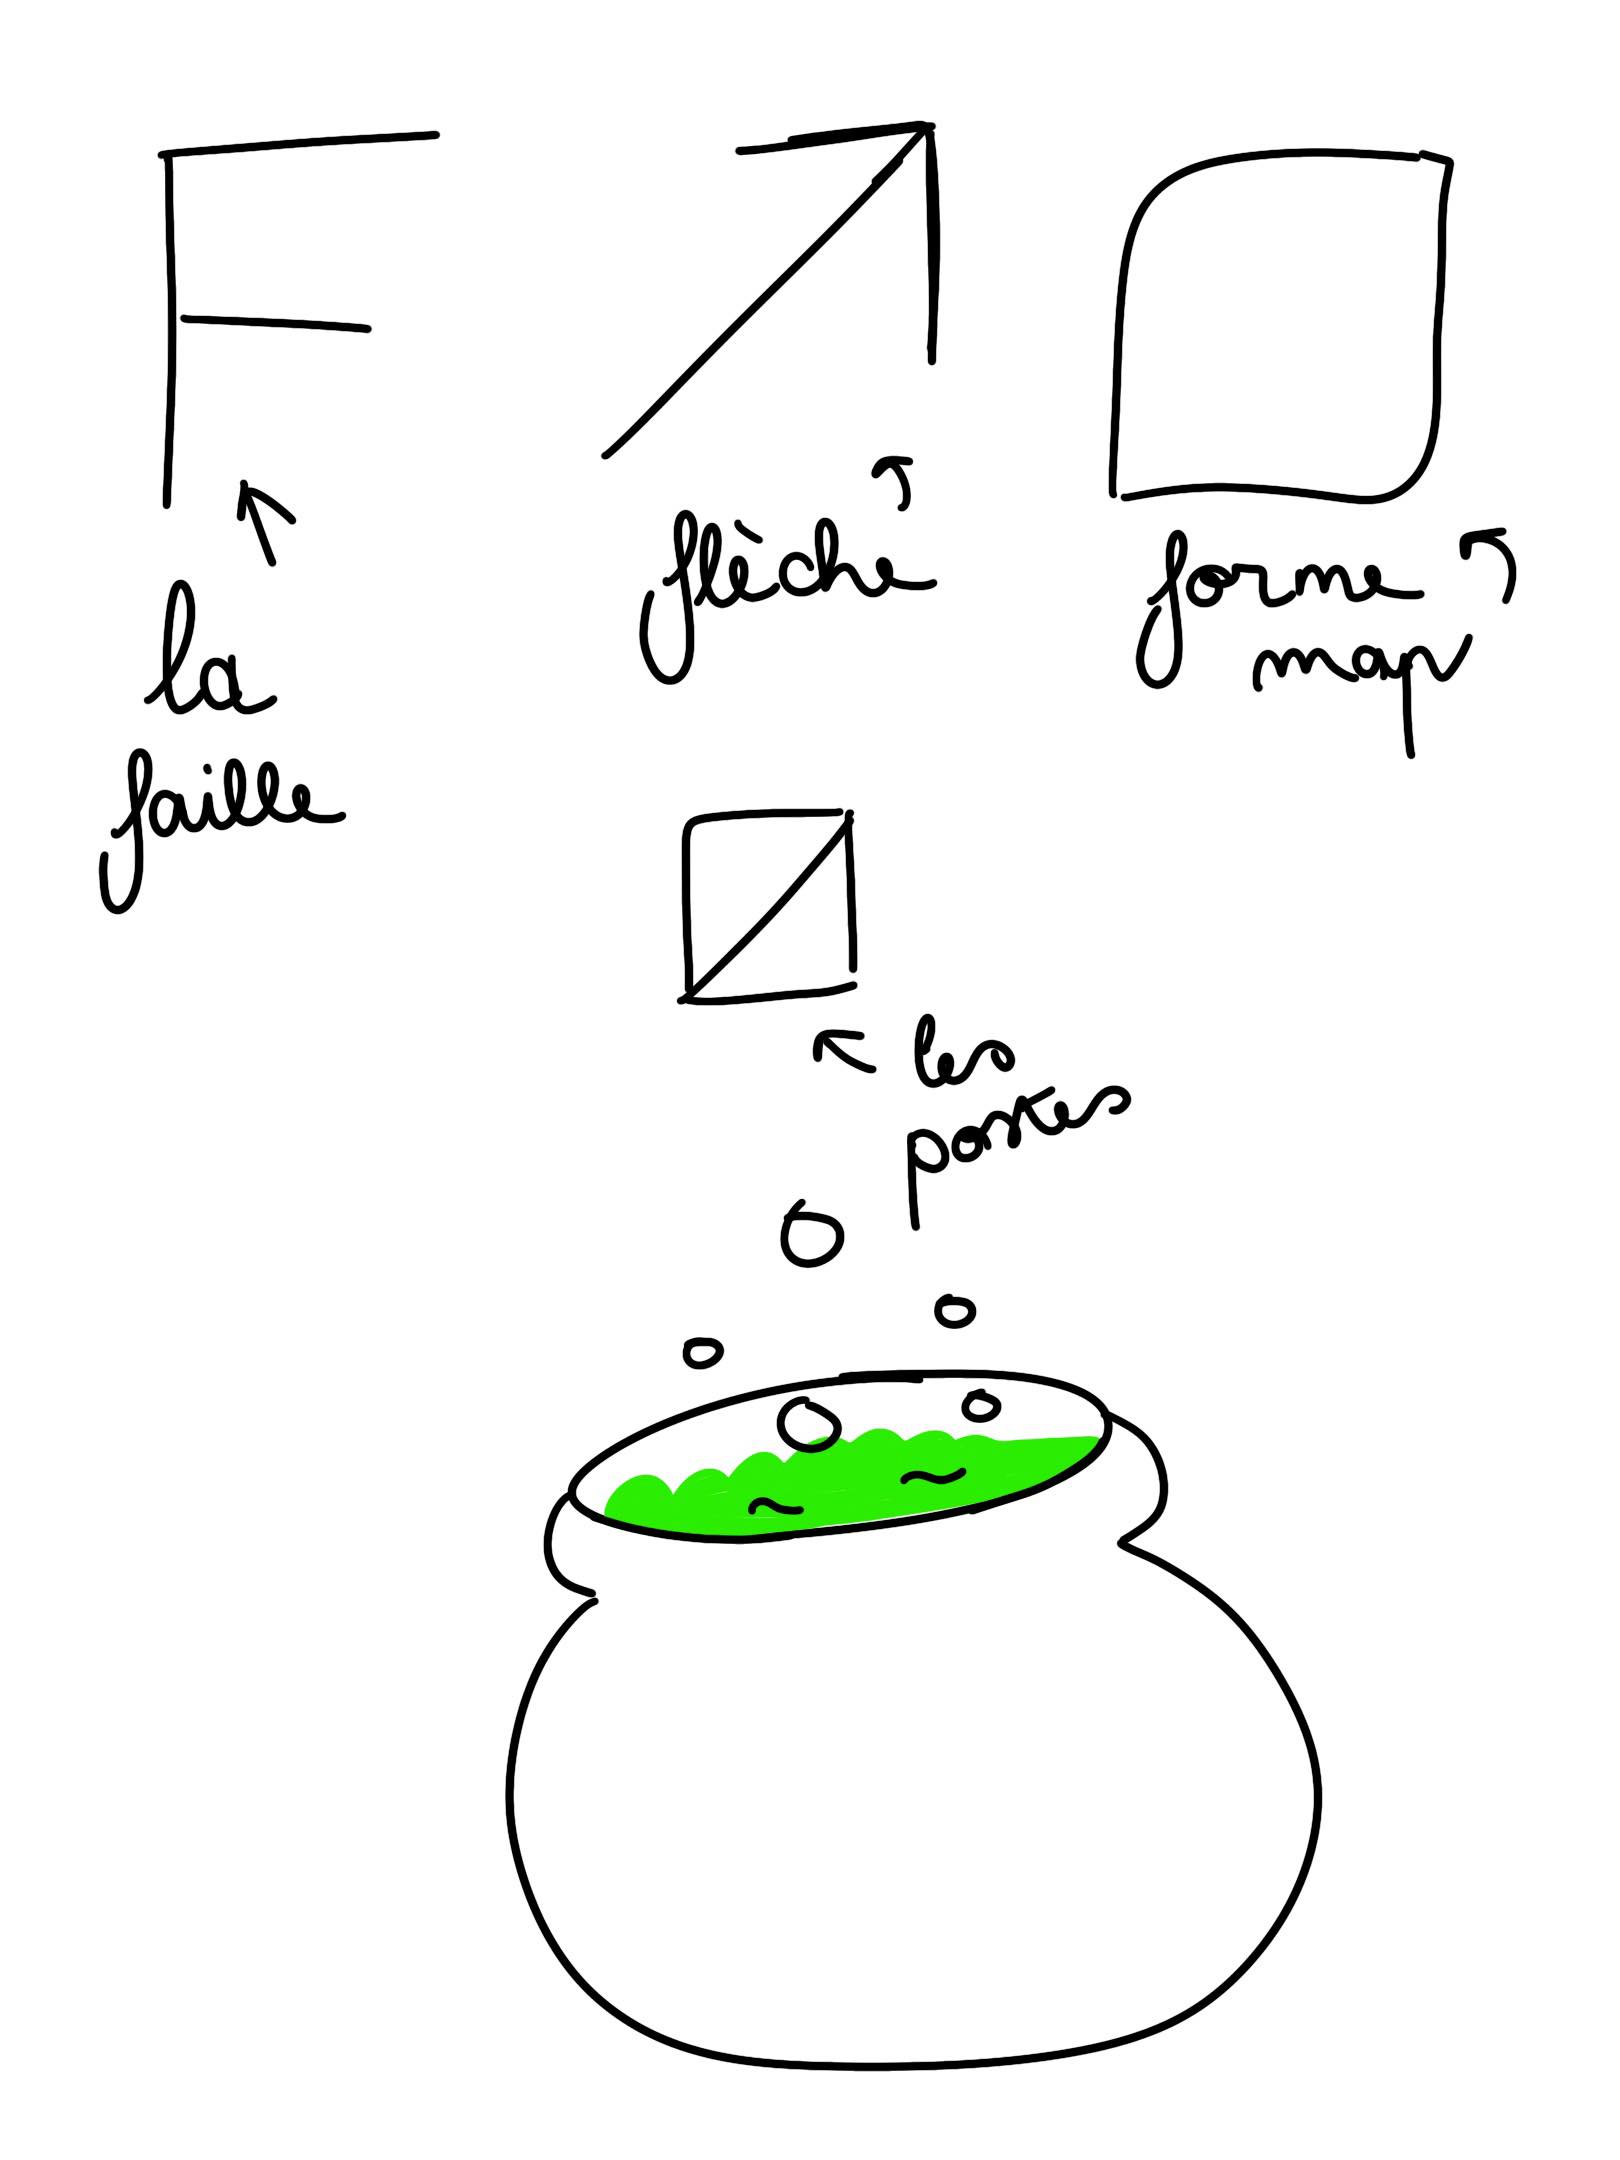 F
la
faille
flèche
forme
map
les
portes